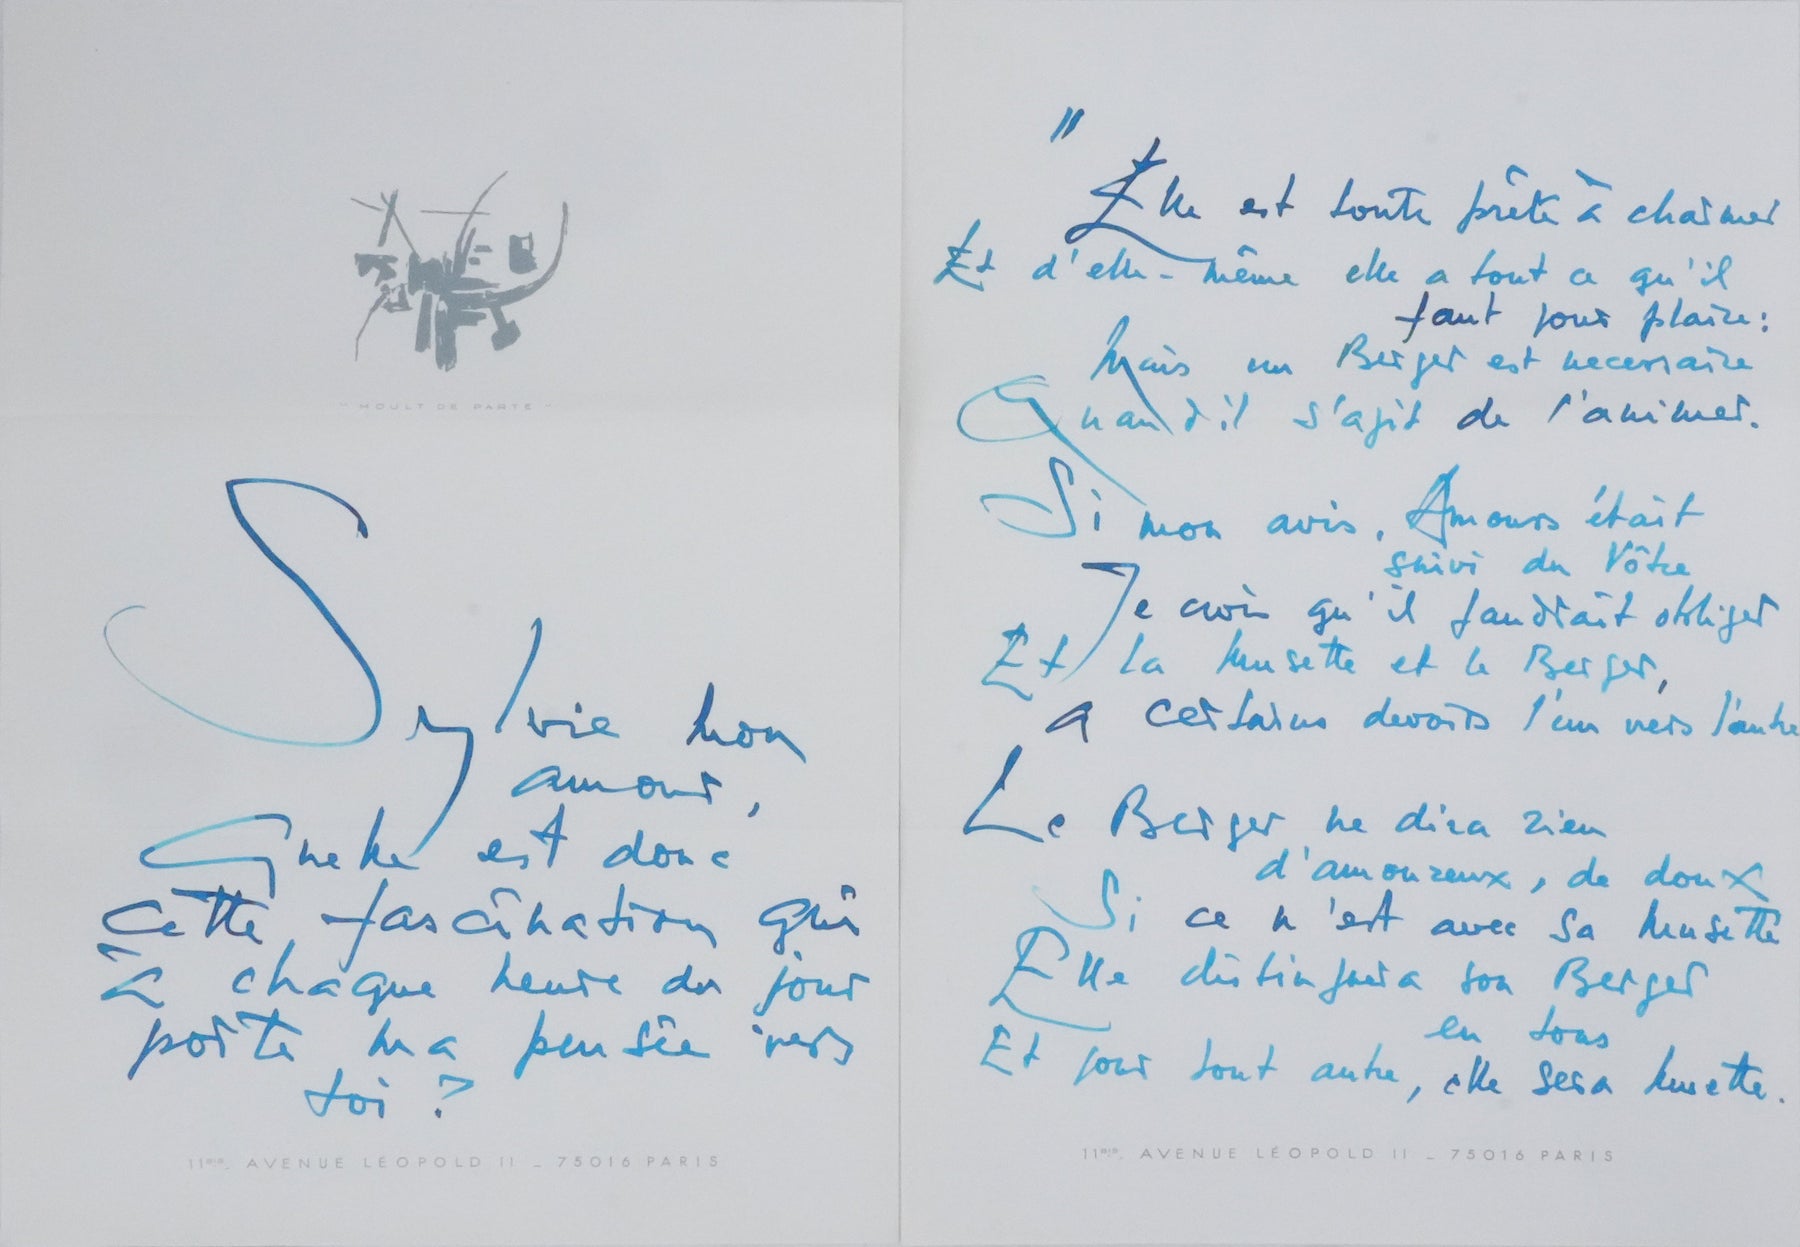 "MOULT DE PARTE"
Sylvie mon
amour,
Quelle est donc
cette fascination qui
à chaque heure du jour
porte ma pensée vers
toi ?
11BIS, AVENUE LÉOPOLD II - 75016 PARIS
"
Elle est toute prête à charmer
Et d'elle-même elle a tout ce qu'il
faut pour plaire :
Mais un Berger est necessaire
Quand il s'agit de l'animer.
Si mon avis, Amours était
suivi du Vôtre
Je crois qu'il faudrait obliger
Et la Musette et le Berger,
a certains devoirs l'un vers l'autre
Le Berger ne dira rien
d'amoureux, de doux
Si ce n'est avec sa Musette
Elle distinguera son Berger
en tous
Et pour tout autre, elle sera muette.
11BIS, AVENUE LÉOPOLD II - 75016 PARIS